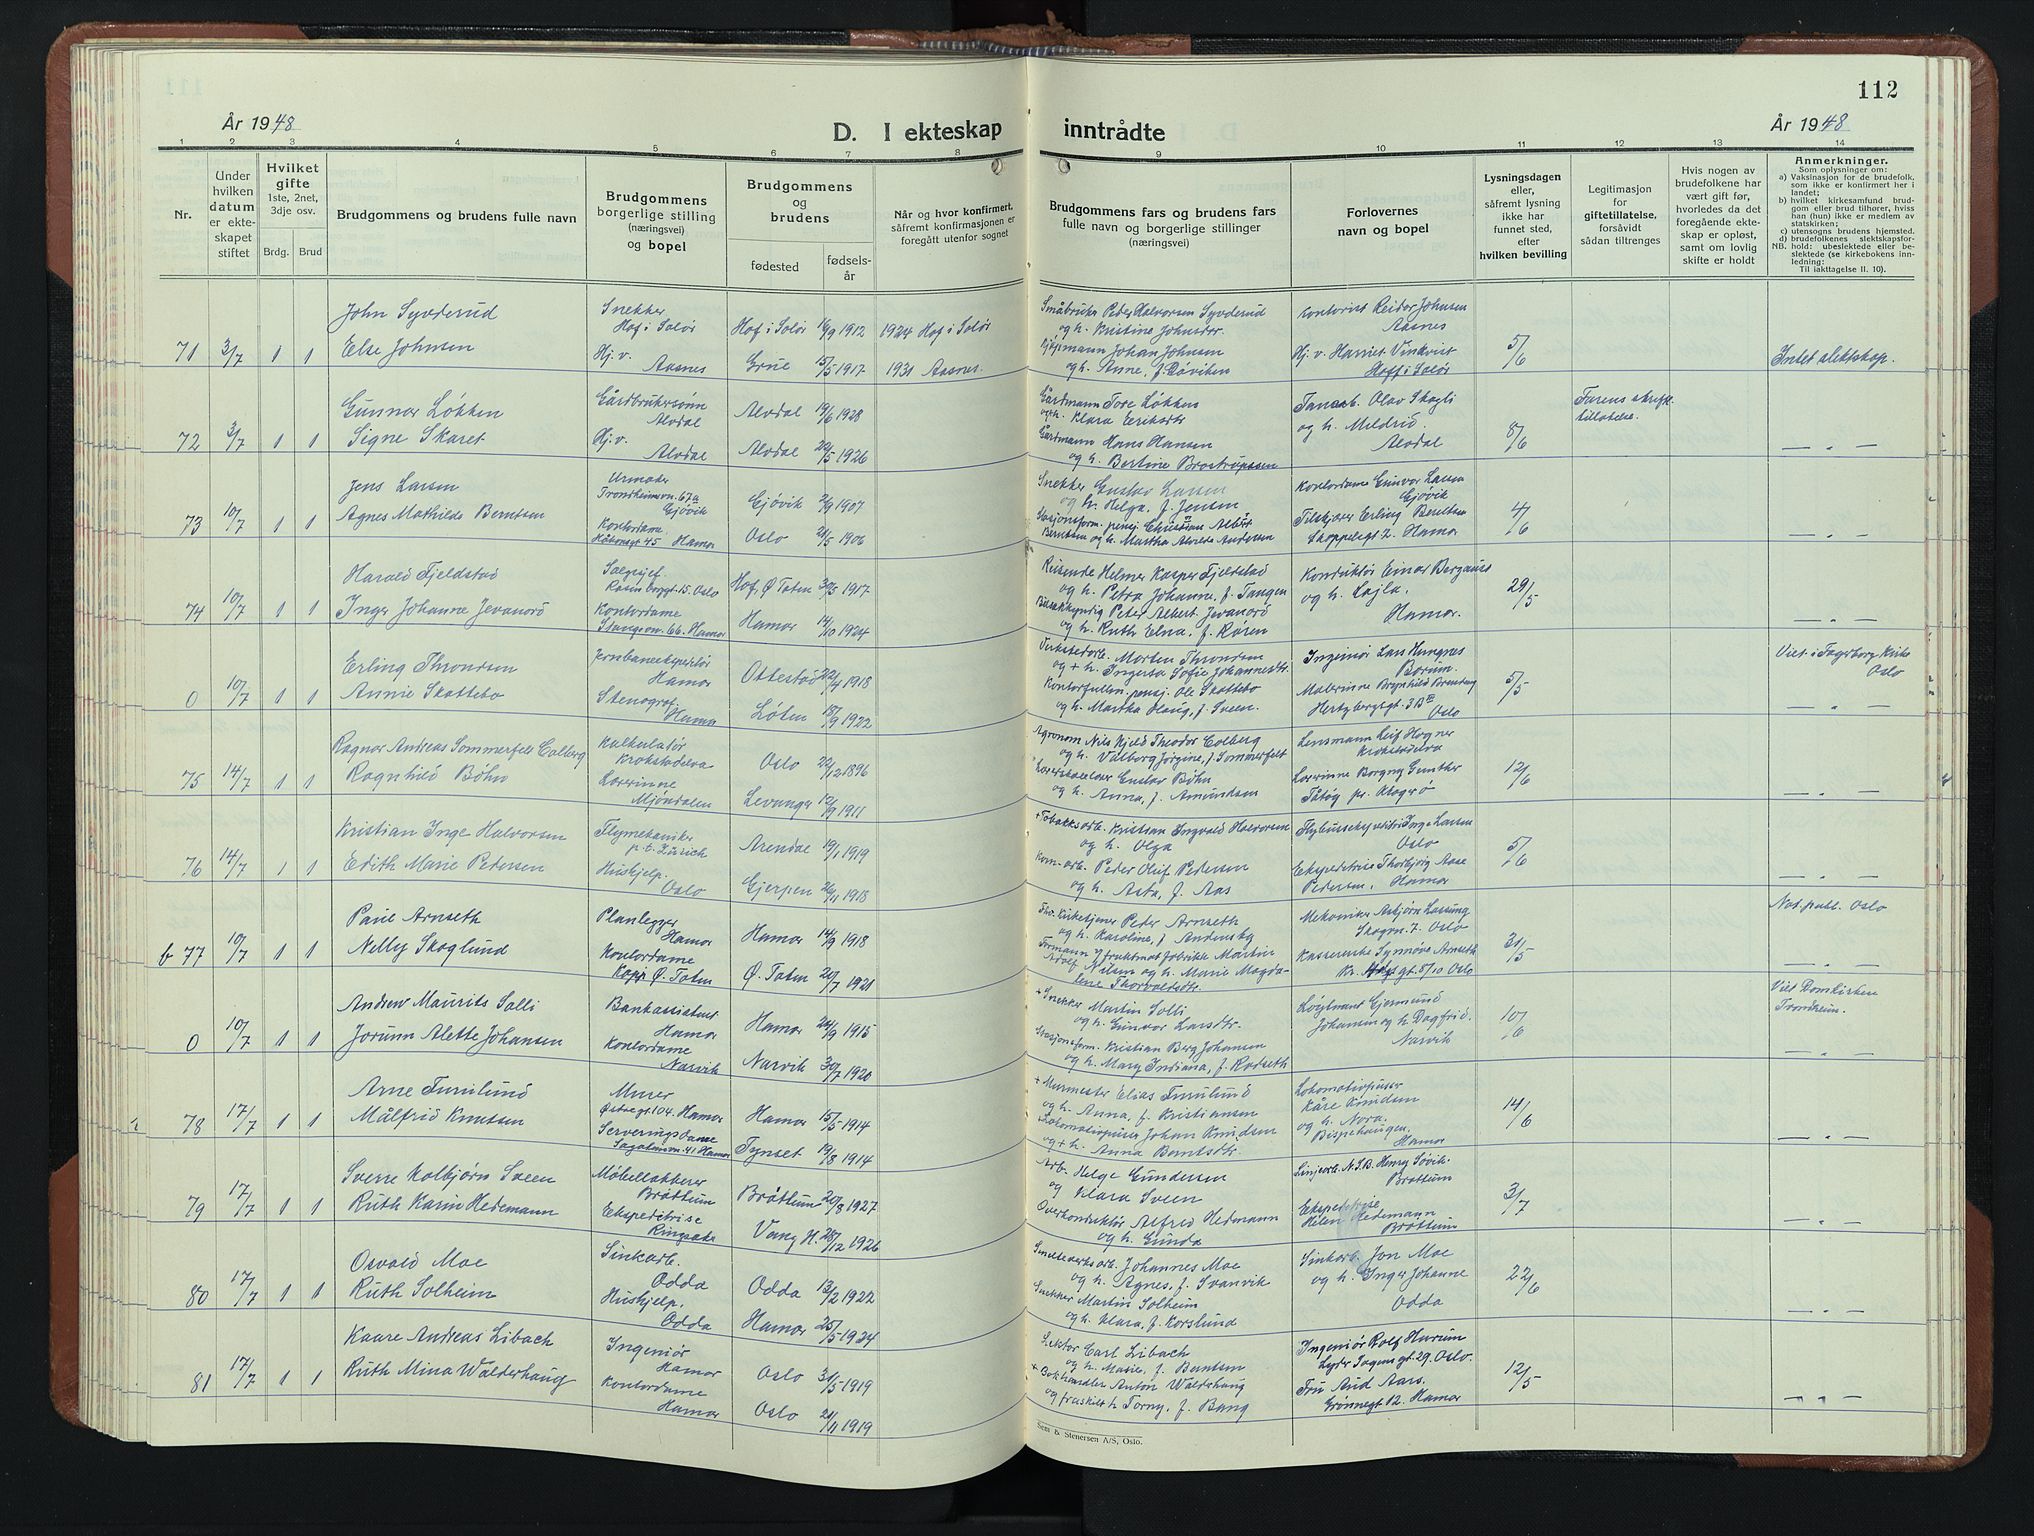 112
År 1948
D. I ekteskap
inntrådte
År 1948
1 2 3 4 5 6 7 8 9 10 11 12 13 14
Nr.
Under
hvilken
datum
er ekte-
skapet
stiftet
Hvilket
gifte
1ste, 2net,
3dje osv.
Brdg. Brud
Brudgommens og brudens fulle navn
Brudgommens
borgerlige stilling
(næringsvei)
og bopel
Brudgommens
og
brudens
fødested
fødsels-
år
Når og hvor konfirmert,
såfremt konfirmasjonen er
foregått utenfor sognet
Brudgommens fars og brudens fars
fulle navn og borgerlige stillinger
(næringsvei)
Forlovernes
navn og bopel
Lysningsdagen
eller,
såfremt lysning
ikke har
funnet sted,
efter
hvilken bevilling
Legitimasjon
for
giftetillatelse,
forsåvidt
sådan tiltrenges
Hvis nogen av
brudefolkene har
vært gift før,
hvorledes da det
foregående ekte-
skap er opløst,
samt om lovlig
skifte er holdt
Anmerkninger.
Som oplysninger om:
a) Vaksinasjon for de brudefolk,
som ikke er konfirmert her i
landet;
b) hvilket kirkesamfund brud-
gom eller brud tilhører, hviss
han (hun) ikke er medlem av
statskirken;
c) utensogns brudens hjemsted.
d) brudefolkenes slektskapsfor-
NB. hold: ubeslektede eller be-
slektede (se kirkebokens inn-
ledning:
Til iakttagelse II. 10).
John Syvderud Snekker Hof i Solør Hof i Solør 16/9 1912 1924 Hof i Solør
Småbruker Peder Halvorsen Syvderud og h. Kristine Johnsdtr. Kontorist Reidar Johnsen Aasnes
71 3/7 1 1 Else Johnsen Hj. v. Aasnes Grue 15/5 1917 1931 Aasnes.
Johan Johnsen og h. Anne, f. Røviken Hj. v. Harriet Vinkvist Hoff i Solør 5/6 Intet slektskap.
Gunnar Løkken Gårdbrukersønn Alvdal Alvdal 19/6 1928
Gårdmann Tore Løkken og h. Klara Eriksdtr. Olav Skogli og h. Mildrid Alvdal Farens skriftl. tillatelse.
72 3/7 1 1 Signe Skaret Hj. v. Alvdal Alvdal 20/5 1926
Gårdmann Hans Hansen og h. Bertine Brostrupssen 8/6 — „ —
Jens Larsen Urmaker Trondheimsvn. 67a Gjøvik Gjøvik 2/9 1907
Snekker Gustav Larsen og h. Helga, f. Jensen Kontordame Gunvor Larsen Gjøvik
73 10/7 1 1 Agnes Mathilde Berntsen Kontordame Håkonsgt 45 Hamar Oslo 21/5 1906
Stasjonsform. pensj. Christian Albert Berntsen og h. Martha Alvilde Andersen Erling Berntsen Skappelsgt 2. Hamar 4/6
Harald Fjeldstad Salgssjef. Rosenborggt. 15. Oslo Hof, Ø. Toten 30/5 1917
Reisende Helmer Kasper Fjeldstad og h. Petra Johanne, f. Tangen Konduktør Einar Bergaust og h. Lajla. Hamar.
74 10/7 1 1 Inger Johanne Jevanord Kontordame Stangevn. 66. Hamar Hamar 14/10 1924
Peter Albert Jevanord og h. Ruth Elna, f. Røren 29/5 — „ —
Erling Throndsen Jernbaneekspeditør Hamar Ottestad 22/4 1918
Verkstedarb. Morten Throndsen og + h. Ingerta Sofie Johannesdtr. Ingeniør Lars Hungnes Bærum. Viet i Fagerborg Kirke Oslo
0 10/7 1 1 Annie Skattebo Stenograf Hamar Løten 15/9 1922
Kontorfullm. pensj. Ole Skattebo og h. Martha Haug, f. Sveen. Malerinne Brynhild Hertzbergsgt. 3 B III Oslo 5/5 — „ —
Ragnar Andreas Sommerfelt Colberg Kalkulatør Krokstadelva Oslo 22/12 1896
Agronom Nils Kjeld Theodor Colberg og h. Valborg Jørgine, f. Sommerfelt Lensmann Leif Hogner Krokstadelva
75 14/7 1 1 Ragnhild Bøhn Lærerinne Mjøndalen Levanger 12/9 1911
Gustav Bøhn og h. Anna, f. Amundsen Lærerinne Borgny Gunther Tåtøy pr. Kragerø 12/6 — „ —
Kristian Inge Halvorsen Flymekaniker p.t. Zürich Arendal 19/1 1919
+ Tobakksarb. Kristian Ingvald Halvorsen og h. Olga Inge Larsen Oslo
76 14/7 1 1 Edith Marie Pedersen Hushjelp. Oslo Gjerpen 26/11 1918
Kom. arb. Peder Oluf Pedersen og h. Asta, f. Aas Ekspeditrise Thorbjørg Aase Pedersen, Hamar 5/6 — „ —
Paul Arnseth Planlegger Hamar Hamar 14/9 1918
Fhv. Kirketjener Peder Arnseth og h. Karoline, f. Andensby Mekaniker Asbjørn Lossung Skogvn. 7. Oslo Not. publ. Oslo
b 77 10/7 1 1 Nelly Skoglund Kontordame Kapp Ø. Toten Ø. Toten 20/7 1921
Formann v/ fruktmat fabrikk Martin Adolf Nilsen og h. Marie Magdalene Thorvaldsdtr. Kassererske Synnøve Arnseth gt. 5/10 Oslo 31/5 — „ —
Andrew Maurits Solli Bankassistent Hamar Hamar 24/9 1915
+ Snekker Martin Solli og h. Gunvor Larsdtr. Gjermund Johansen og h. Dagfrid. Narvik Viet Domkirken Trondheim.
0 10/7 1 1 Jorunn Alette Johansen Kontordame Narvik Narvik 30/7 1920
Stasjonsform. Kristian Berg Johansen og h. Mary Indiana, f. Rødseth 10/6 — „ —
Arne Furulund Murer Østregt. 104. Hamar Hamar 15/5 1914
+ Murmester Elias Furulund og h. Anna, f. Kristiansen Lokomotivpusser Kåre Knudsen og h. Nora. Bispehaugen. Hamar
78 17/7 1 1 Målfrid Knutsen Serveringsdame Sagatunvn. 41 Hamar Tynset 19/8 1914
+ Lokomotivpusser Johan Knudsen og + h. Anna Berntsdtr. 14/6 — „ —
Sverre Kolbjørn Sveen Møbellakkerer Brøttum Brøttum 20/8 1927
Arb. Helge Gundersen og Klara Sveen Linjearb. N.S.B. Henry Søvik. Brøttum
79 17/7 1 1 Ruth Karin Hedemann Ekspeditrise Ringsaker Vang H. 28/12 1926
Overkonduktør Alfred Hedmann og h. Gunda Ekspeditrise Helen Hedemann Brøttum 3/7 — „ —
Osvald Moe Sinkarb. Odda Odda 13/2 1922
Smelteverksarb. Johannes Moe og h. Agnes, f. Svanvik Sinkarb. Jon Moe og h. Inger Johanne Odda
80 17/7 1 1 Ruth Solheim Hushjelp. Odda Hamar 25/5 1924
Snekker Martin Solheim og h. Klara, f. Korslund 22/6 — „ —
Kaare Andreas Libach Ingeniør Hamar Oslo 31/5 1919
Lektor Carl Libach og h. Marie, f. Berntsen Ingeniør Rolf Hurum Lyder Sagens gt. 29. Oslo.
81 17/7 1 1 Ruth Mina Walderhaug Kontordame Hamar Oslo 21/11 1919
+ Bokhandler Anton Walderhaug og fraskilt h. Torny, f. Bang Fru Aud Aars. Grønnegt 12. Hamar 12/5 — „ —
Sem & Stenersen A/S, Oslo.